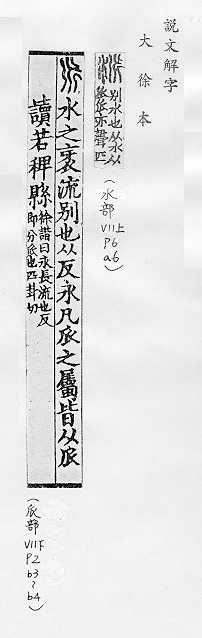 説文解字
大徐本
別水也从水从
𠂢𠂢亦聲匹
(水部 VII上 p6 a6)
水之衺流別也从反永凡𠂢之屬皆从𠂢
讀若稗縣
徐鍇曰永長流也反
即分𠂢也匹卦切
(𠂢部 VII下 p2 b3~b4)